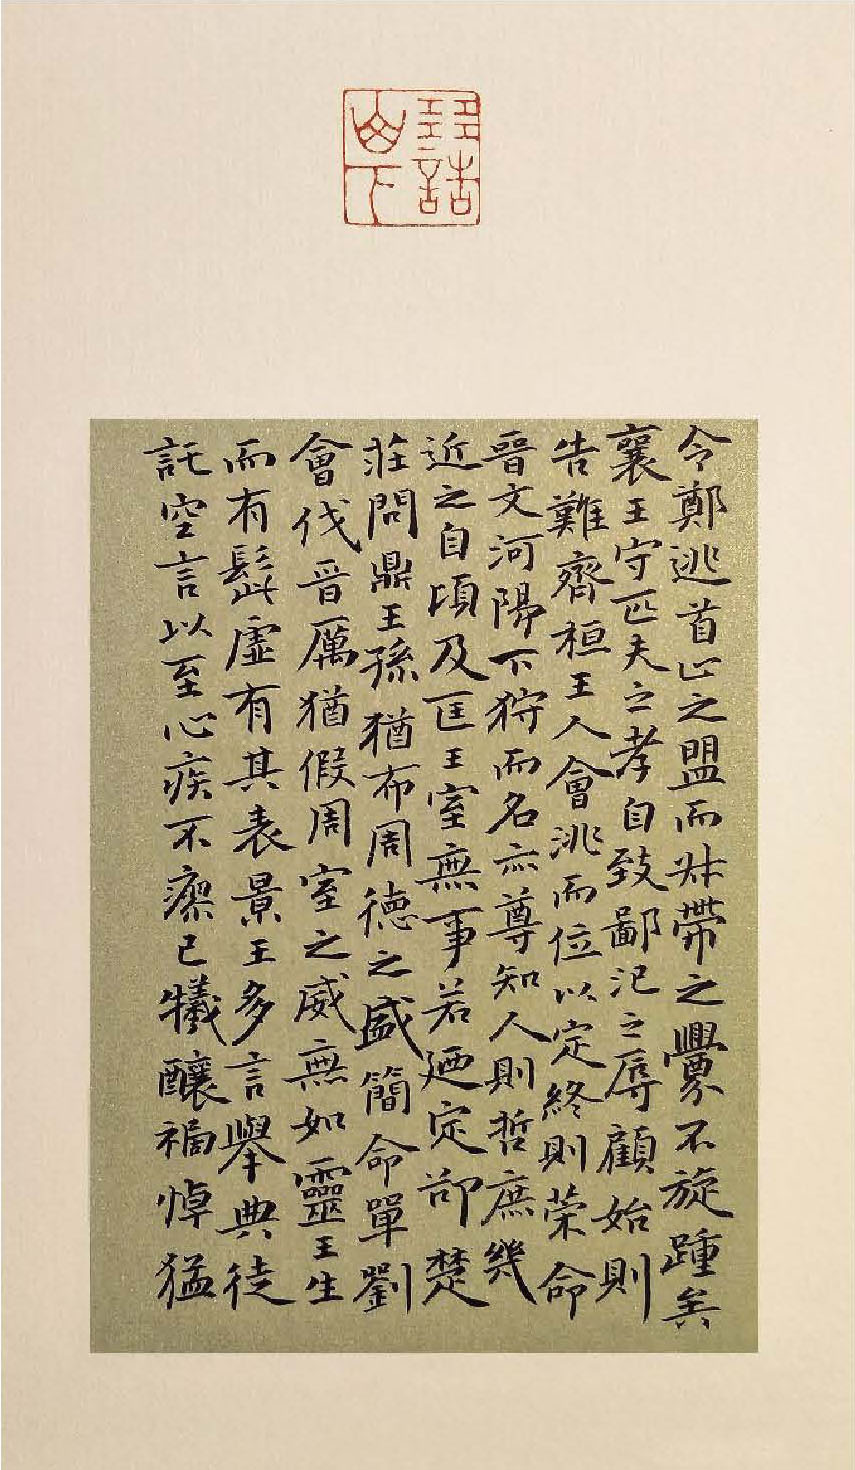 令鄭逃首止之盟而叔帶之釁不旋踵矣
襄王守匹夫之孝自致鄙汜之辱顧始則
告難齊桓王人會洮而位以定終則榮命
晉文河陽下狩而名亦尊知人則哲庶幾
近之自頃及匡王室無事若迺定郤楚
莊問鼎王孫猶布周德之盛簡命單劉
會伐晉厲猶假周室之威無如靈王生
而有髭虛有其表景王多言舉典徒
託空言以至心疾不瘳已犧釀禍悼猛